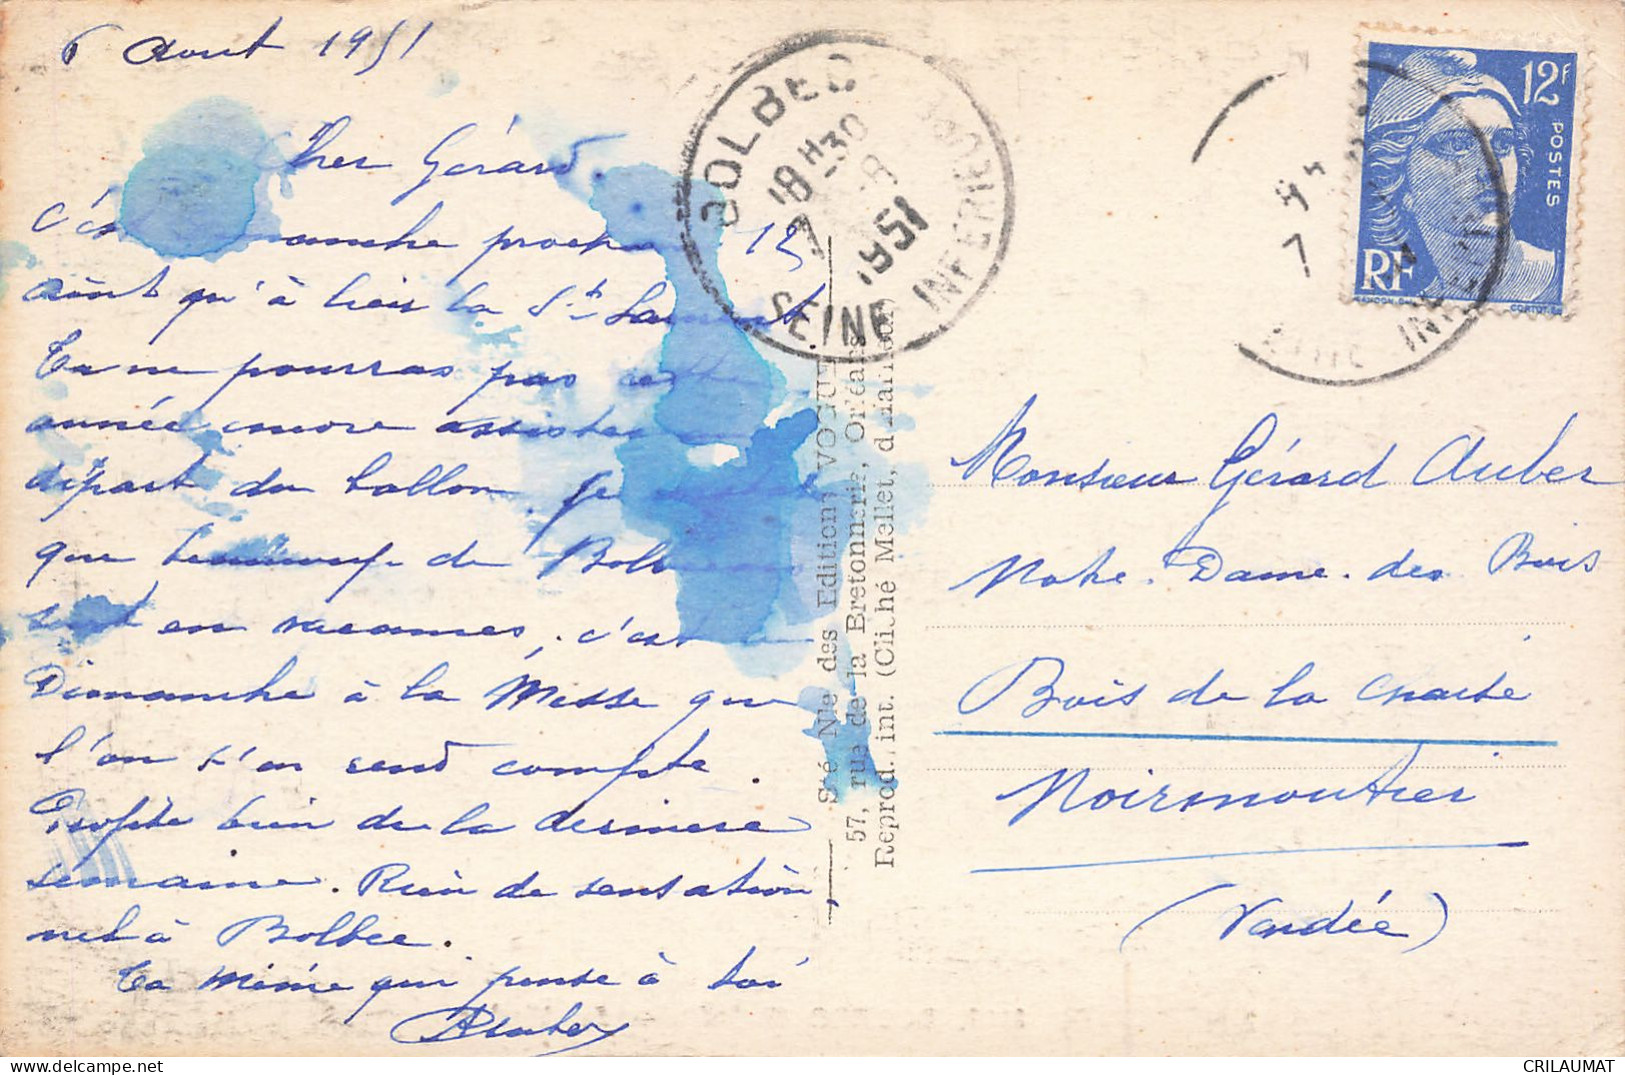 6 Aout 1951
Cher Gérard.
c'est Dimanche prochain 12
août qu'à lieu la St Laurent
Tu ne pourras pas cette
année encore assister au
départ du ballon. Je
que beaucoup de
sont en vacances, c'est le
Dimanche à la Messe que
l'on s'en rend compte.
Profite bien de la dernière
semaine. Rien de sensationnel
nel à Bolbec.
Ta Mémé qui pense à toi
BOLBEC
18 H 30
7 - 8
1951
SEINE INFERIEURE
Sté Nlle des Editions VOGUE
57, rue de la Bretonnerie, Orléans
Reprod. int. (Cliché Mellet, d'Airlaud)
12F
POSTES
RF
GANDON
CORTOT
Monsieur Gérard Auber
Notre-Dame-des Bois
Bois de la Chaise
Noirmoutier
(Vendée)
CRILAUMAT